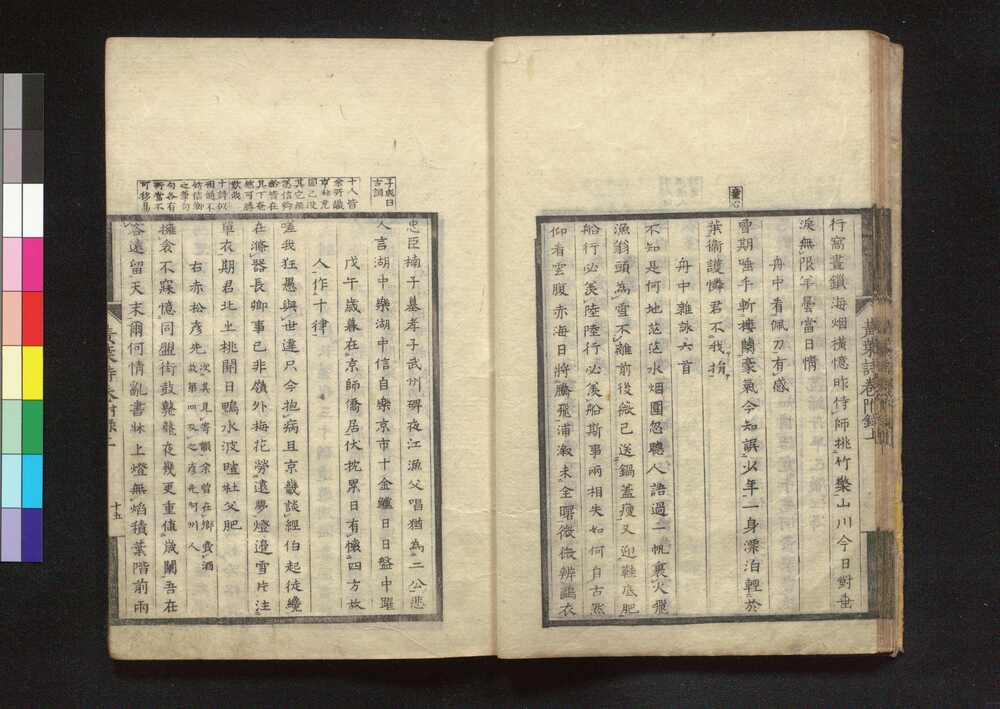 行窩晝鎖海烟橫憶昨侍師挑竹檠山川今日對垂
淚無限平曇當日情
舟中看佩刀有感
曾期唾手斬樓蘭豪氣今知誤少年一身漂泊輕於
葉衞護憐君不我捐
舟中雜詠六首
不知是何地茫茫水烟圍忽聽人語過一帆裏火飛
漁翁頭爲雪不離前後磯已送鍋蓋瘦又迎鞋底肥
船行必羨陸陸行必羨船斯事兩相失如何自古然
仰看雲腹赤海日將騰飛浦漵未全曙微微辨蓑衣
童心
黃葉詩卷附錄上
子成曰
古調
忠臣楠子墓孝子武州碑夜江漁父唱猶爲二公悲
人言湖中樂湖中信自樂京市十金鱸日日盤中躍
戊午歲暮在京師僑居伏枕累日有懷四方故
人作十律
嗟我狂愚與世違只今抱病且京畿談經伯起徒纔
在滌器長卿事已非嶺外梅花勞遠夢燈邉雪片注
單衣期君北土桃開日鴨水波暄杜父肥
右赤松彥先
次其見寄韻余曾在鄕費酒
故第四及之彥先阿州人
擁衾不寐憶同盟街鼓鼕鼕夜幾更重値歲闌吾在
客遠留天末爾何情亂書牀上燈無焰積葉階前雨
十五